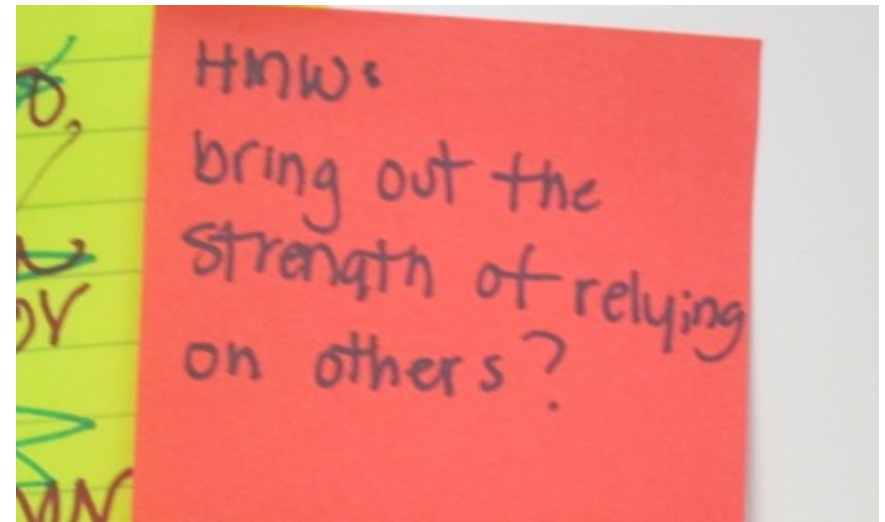 HMW:
bring out the
strength of relying
on others?